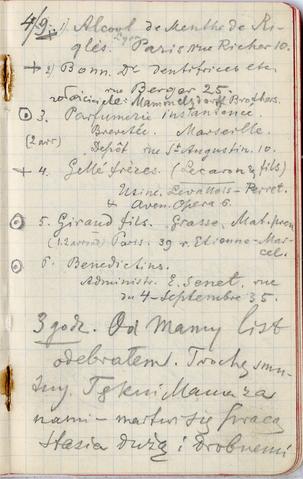 4/9. 1) Alcool de Menthe de Ri-
Lyon
qlès. Paris rue Richer 10.
+ 2) Bonn. Dr dentifrices etc.
rue Berger 25.
właściciele: Mammelsdorff Brothers.
3. Parfumerie instantanée.
(2 arr) Brevetée. Marseille.
Depôt rue St Augustin. 10.
+ 4. Gellé frères. (Lecaron & fils)
Usine. Levallois-Perret.
6 Aven. Opera 6.
5. Giraud fils. Grasse. Mat. prem
Paris. 39 r. Etienne-Mar-
cel.
6. Benedictins.
Administr. E. Senet, rue
du 4-Septembre 35.
3 godz. Od Mamy list
odebrałem. Trochę smu-
tny. Tęskni Mama za
nami - martwi się pracą
Stasia dużą i drobnemi